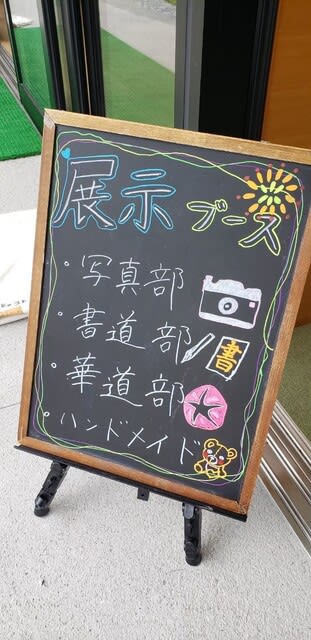 展示ブース
・写真部
・書道部
書
・華道部
・ハンドメイド